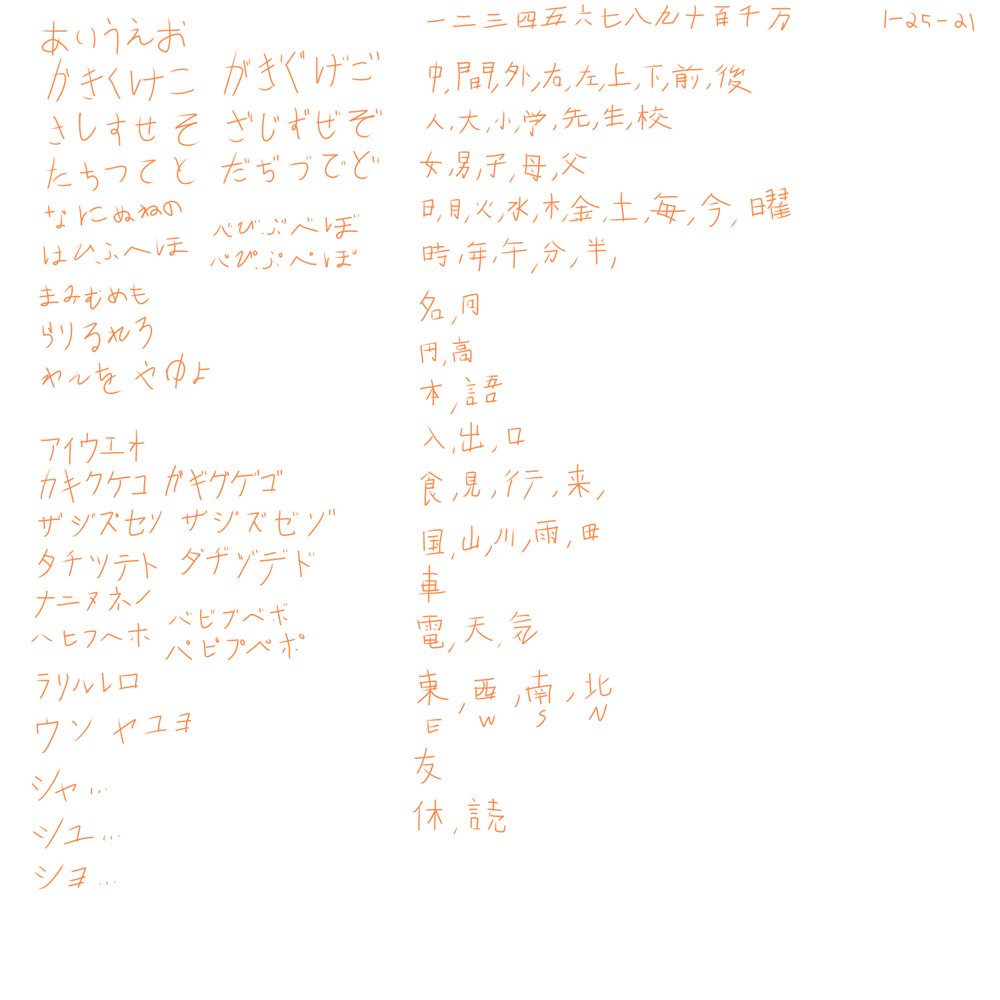 あいうえお
かきくけこ がぎぐげご
さしすせそ ざじずぜぞ
たちつてと だぢづでど
なにぬねの
はひふへほ ばびぶべぼ
ぱぴぷぺぽ
まみむめも
らりるれろ
わんを やゆよ
アイウエオ
カキクケコ ガギグゲゴ
ザジズセソ ザジズゼゾ
タチツテト ダヂヅデド
ナニヌネノ
ハヒフヘホ バビブベボ
パピプペポ
ラリルレロ
ウン ヤユヨ
シャ...
シュ...
ショ...
一二三四五六七八九十百千万
1-25-21
中,間,外,右,左,上,下,前,後
人,大,小,学,先,生,校
女,男,子,母,父
日,月,火,水,木,金,土,毎,今,曜
時,年,午,分,半,
名,何
円,高
本,語
入,出,口
食,見,行,来,
国,山,川,雨,毌
車
電,天,気
東,西,南,北
E W S N
友
休,読